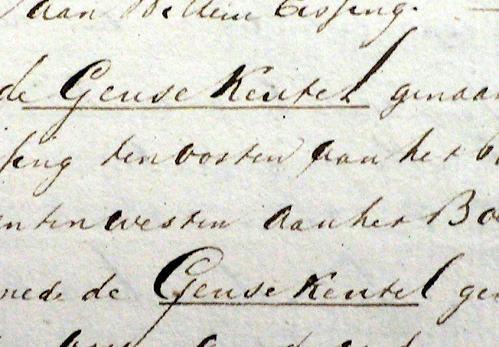 aan Willem Essing.
de Geuse Keutel genaam
sing ten oosten aan het b
en ten westen aan het Bo
mede de Geuse Keutel gen